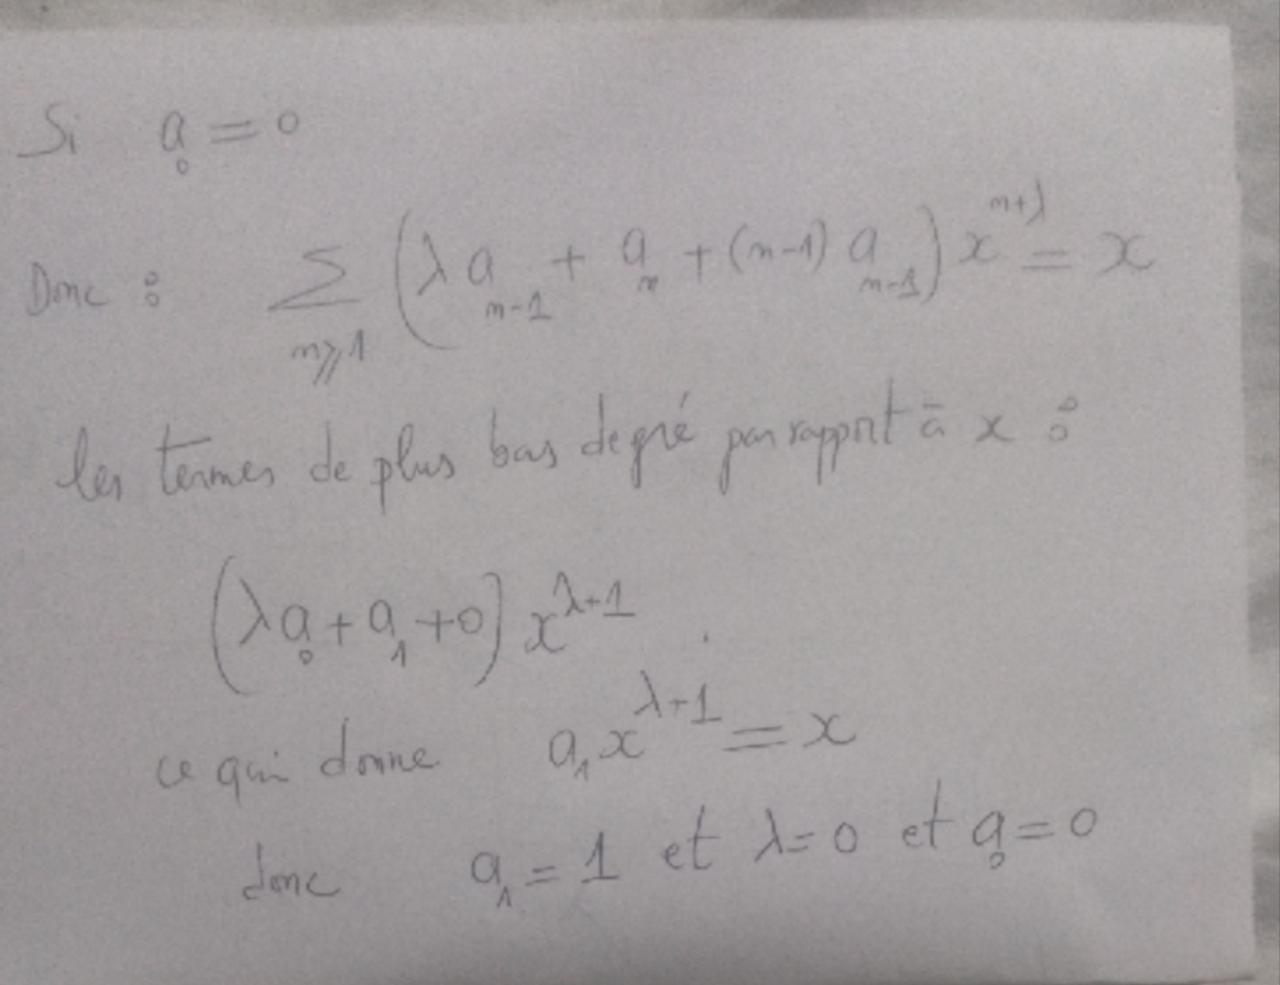 Si a₀ = 0
Donc : ∑_{n⩾1} (λ a_{n-1} + a_n + (n-1) a_{n-1}) x^{n+λ} = x
les termes de plus bas degré par rapport à x :
(λ a₀ + a₁ + 0) x^{λ+1}
ce qui donne a₁ x^{λ+1} = x
donc a₁ = 1 et λ = 0 et a₀ = 0